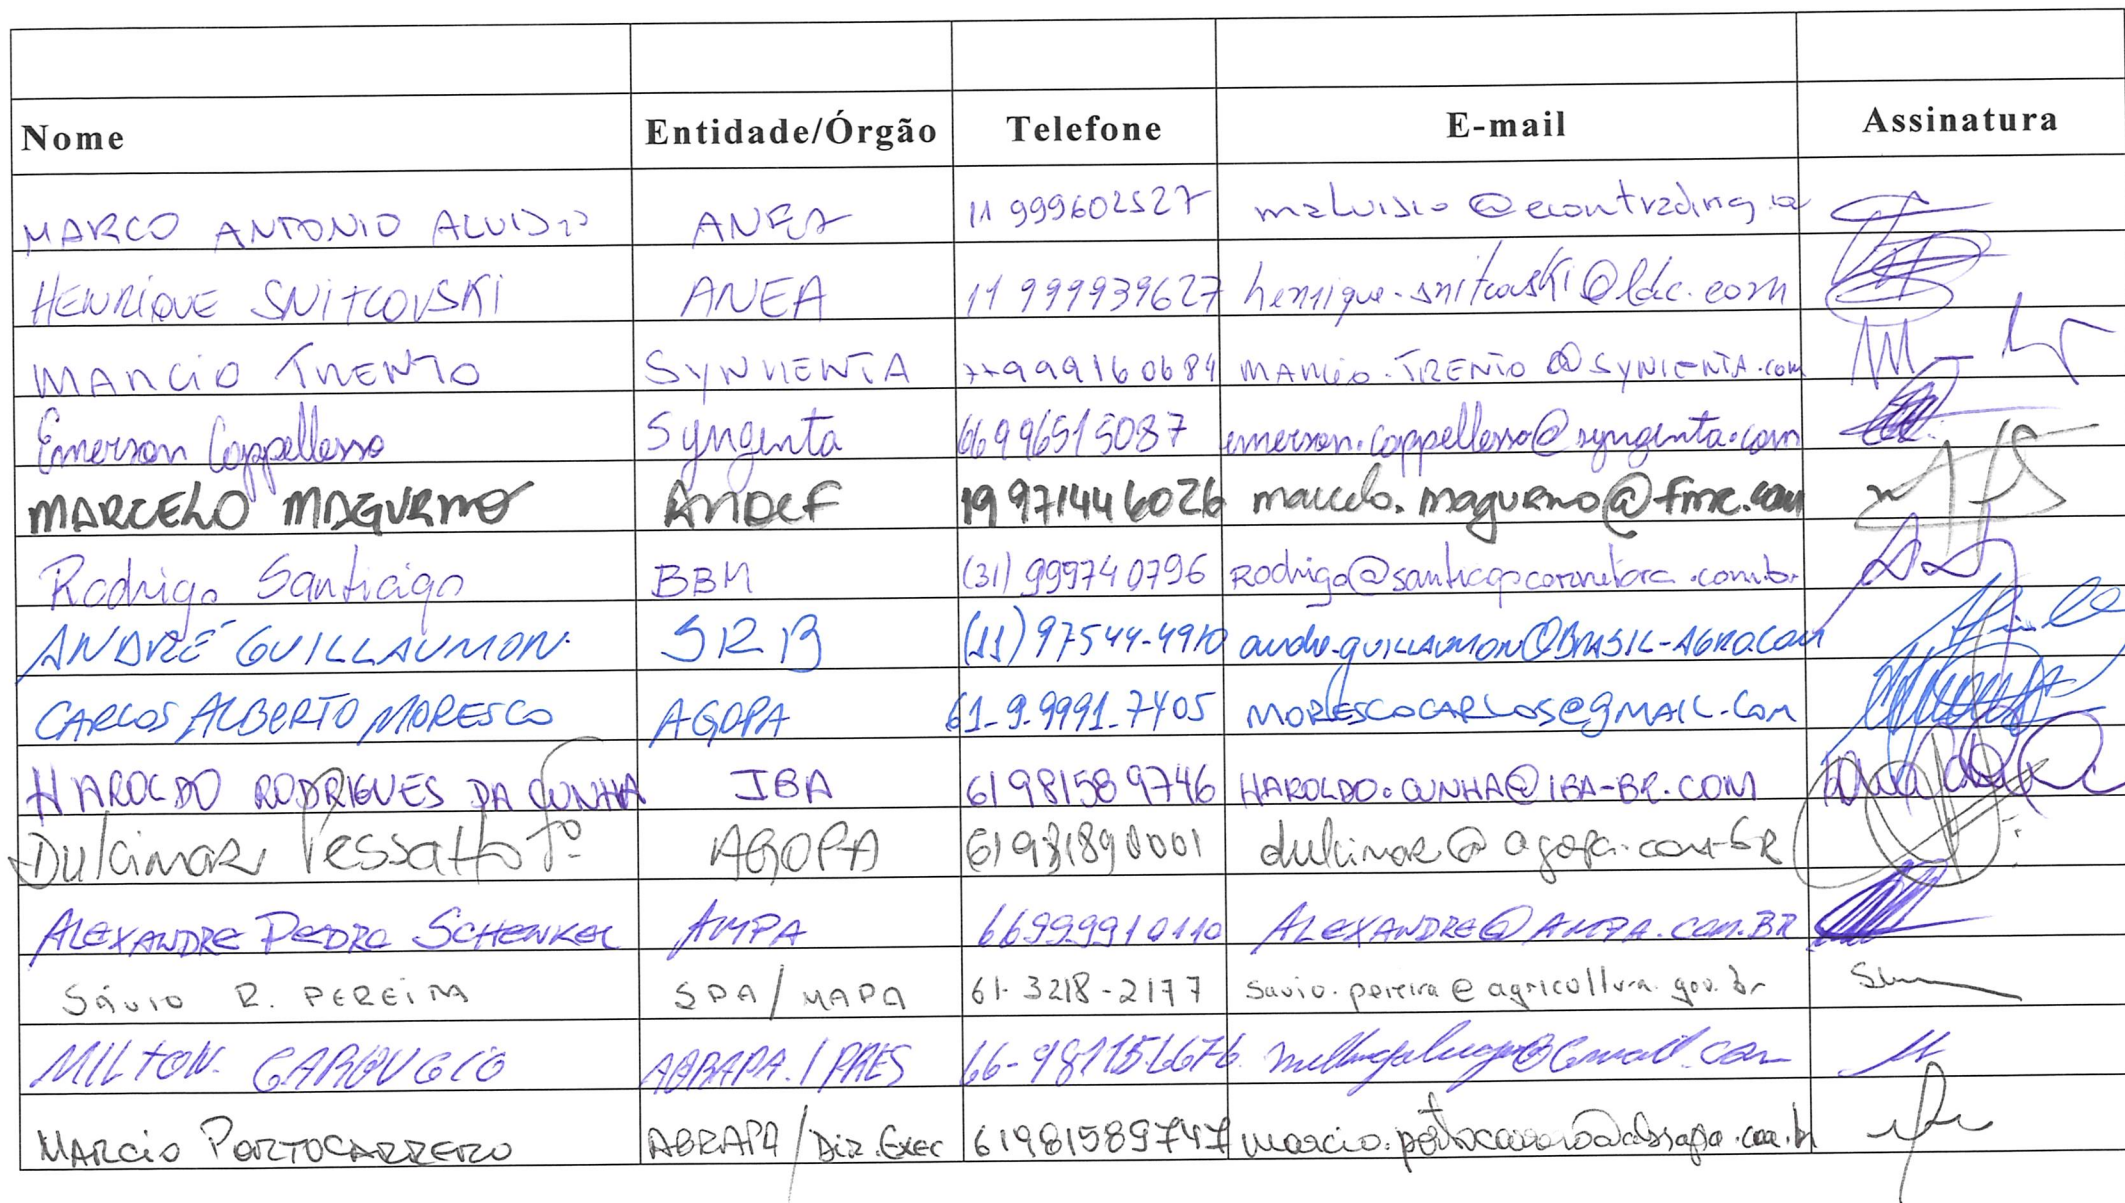 Nome Entidade/Órgão Telefone E-mail Assinatura
MARCO ANTONIO ALUISIO ANEA 11 999602527 maluisio@econtrading.
HENRIQUE SNITCOVSKI ANEA 11 999939627 henrique.snitcovski@ldc.com
MARCIO TRENTO SYNGENTA 77999160684 MARCIO.TRENTO@SYNGENTA.com
Emerson Cappellesso Syngenta 66996515087 emerson.cappellesso@syngenta.com
MARCELO MAGURNO ANDEF 19 971446026 marcelo.magurno@fmc.com
Rodrigo Santiago BBM (31) 999740796 Rodrigo@santiagocorretora.com.br
ANDRÉ GUILLAUMON. SRB (11) 97544-4910 andre.guillaumon@BRASIL-AGRO.COM
CARLOS ALBERTO MORESCO AGOPA 61-9.9991-7405 MORESCOCARLOS@gMAIL.COM
HAROLDO RODRIGUES DA CUNHA IBA 61981589746 HAROLDO.CUNHA@IBA-BR.COM
Dulcimar Pessatto Fº AGOPA 61981890001 dulcimar@agopa.com.br
ALEXANDRE PEDRO SCHENKEL AMPA 66999910110 ALEXANDRE@AMPA.COM.BR
SÁVIO R. PEREIRA SPA/MAPA 61-3218-2177 savio.pereira@agricultura.gov.br
MILTON GARBUGIO ABRAPA/PRES miltongarbugio@Gmail.com
MARCIO PORTOCARRERO ABRAPA/Dir.Exec 61981589747 marcio.portocarrero@abrapa.com.br